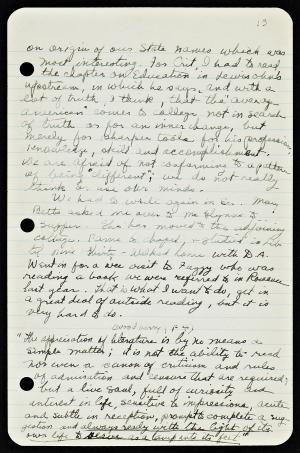 13
on origin of our State names which was
most interesting. For Crit, I had to read
the chapter on Education in Lewisohn's
Upstream, in which he says, and with a
lot of truth I think, that the "average
American" comes to college not in search
of truth or for an inner change, but
merely for sharper tools for his profession,
knowledge, skill and accomplishment.
We are afraid of not conforming to a pattern
of being "different"; we do not really
think or use our minds.
We had to write again in Ec. Mary
Betts asked me over to
supper. She has moved to the adjoining
cottage. Came to board, studied in
to nine thirty - walked home with D.A.
Went in for a wee visit to Peggy who was
reading a book we were referred to in
last year. That is what I want to do, get in
a great deal of outside reading, but it is
very hard to do.
"The appreciation of literature is by no means a
simple matter; it is not the ability to read
nor even a canon of criticism and rules
of admiration and censure that are required;
but a live soul, full of curiosity and
interest in life, sensitive to impressions, acute
and subtle in reception, prompt to complete a sug-
gestion and always ready with the light of its
own life to serve as a lamp unto its feet"